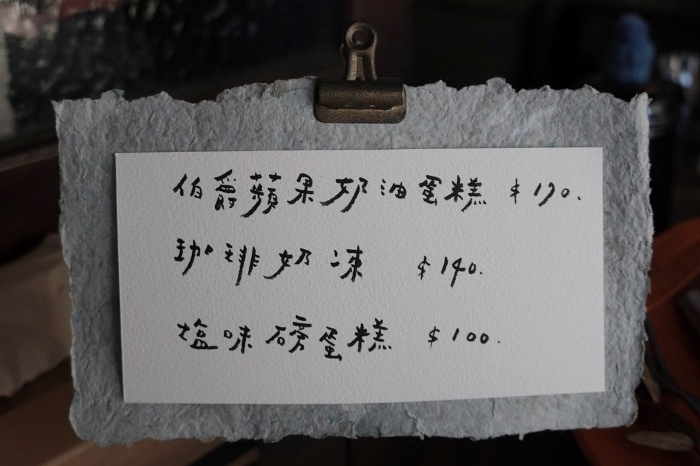 伯爵蘋果奶油蛋糕 $170.
珈琲奶凍 $140.
塩味磅蛋糕 $100.